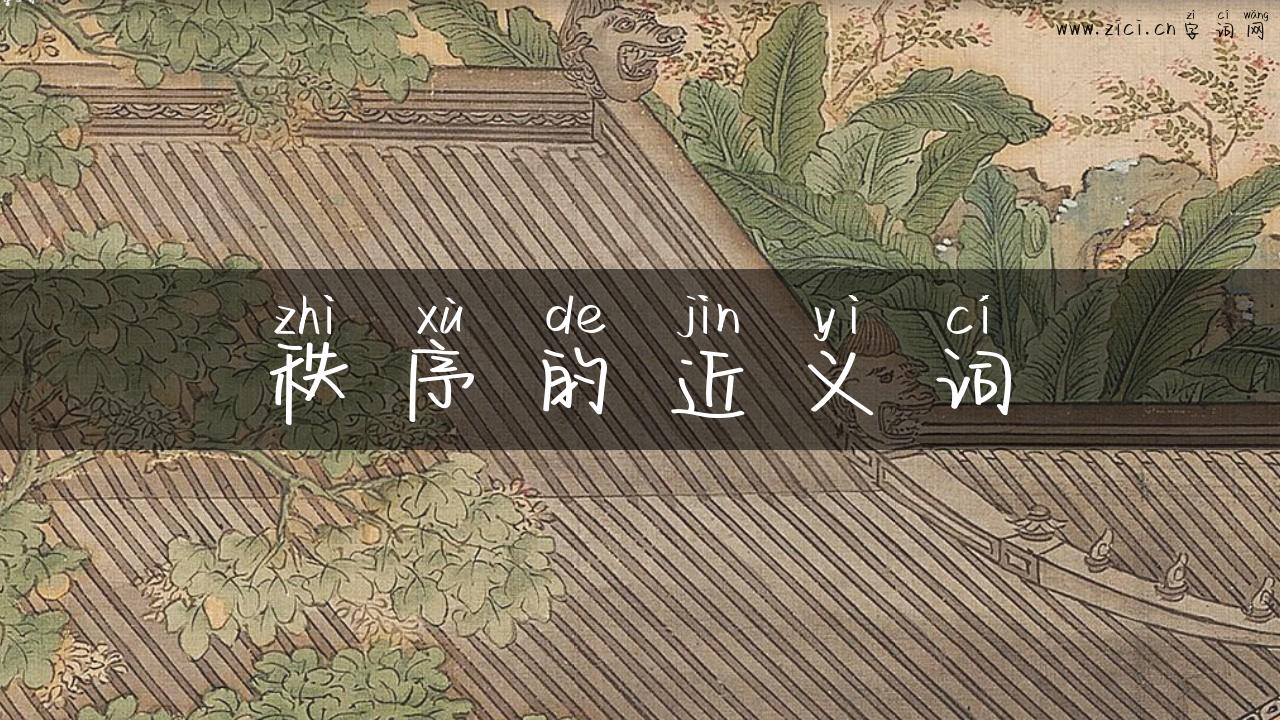 zì cí wǎng
www.zici.cn 字词网
zhì xù de jìn yì cí
秩序的近义词